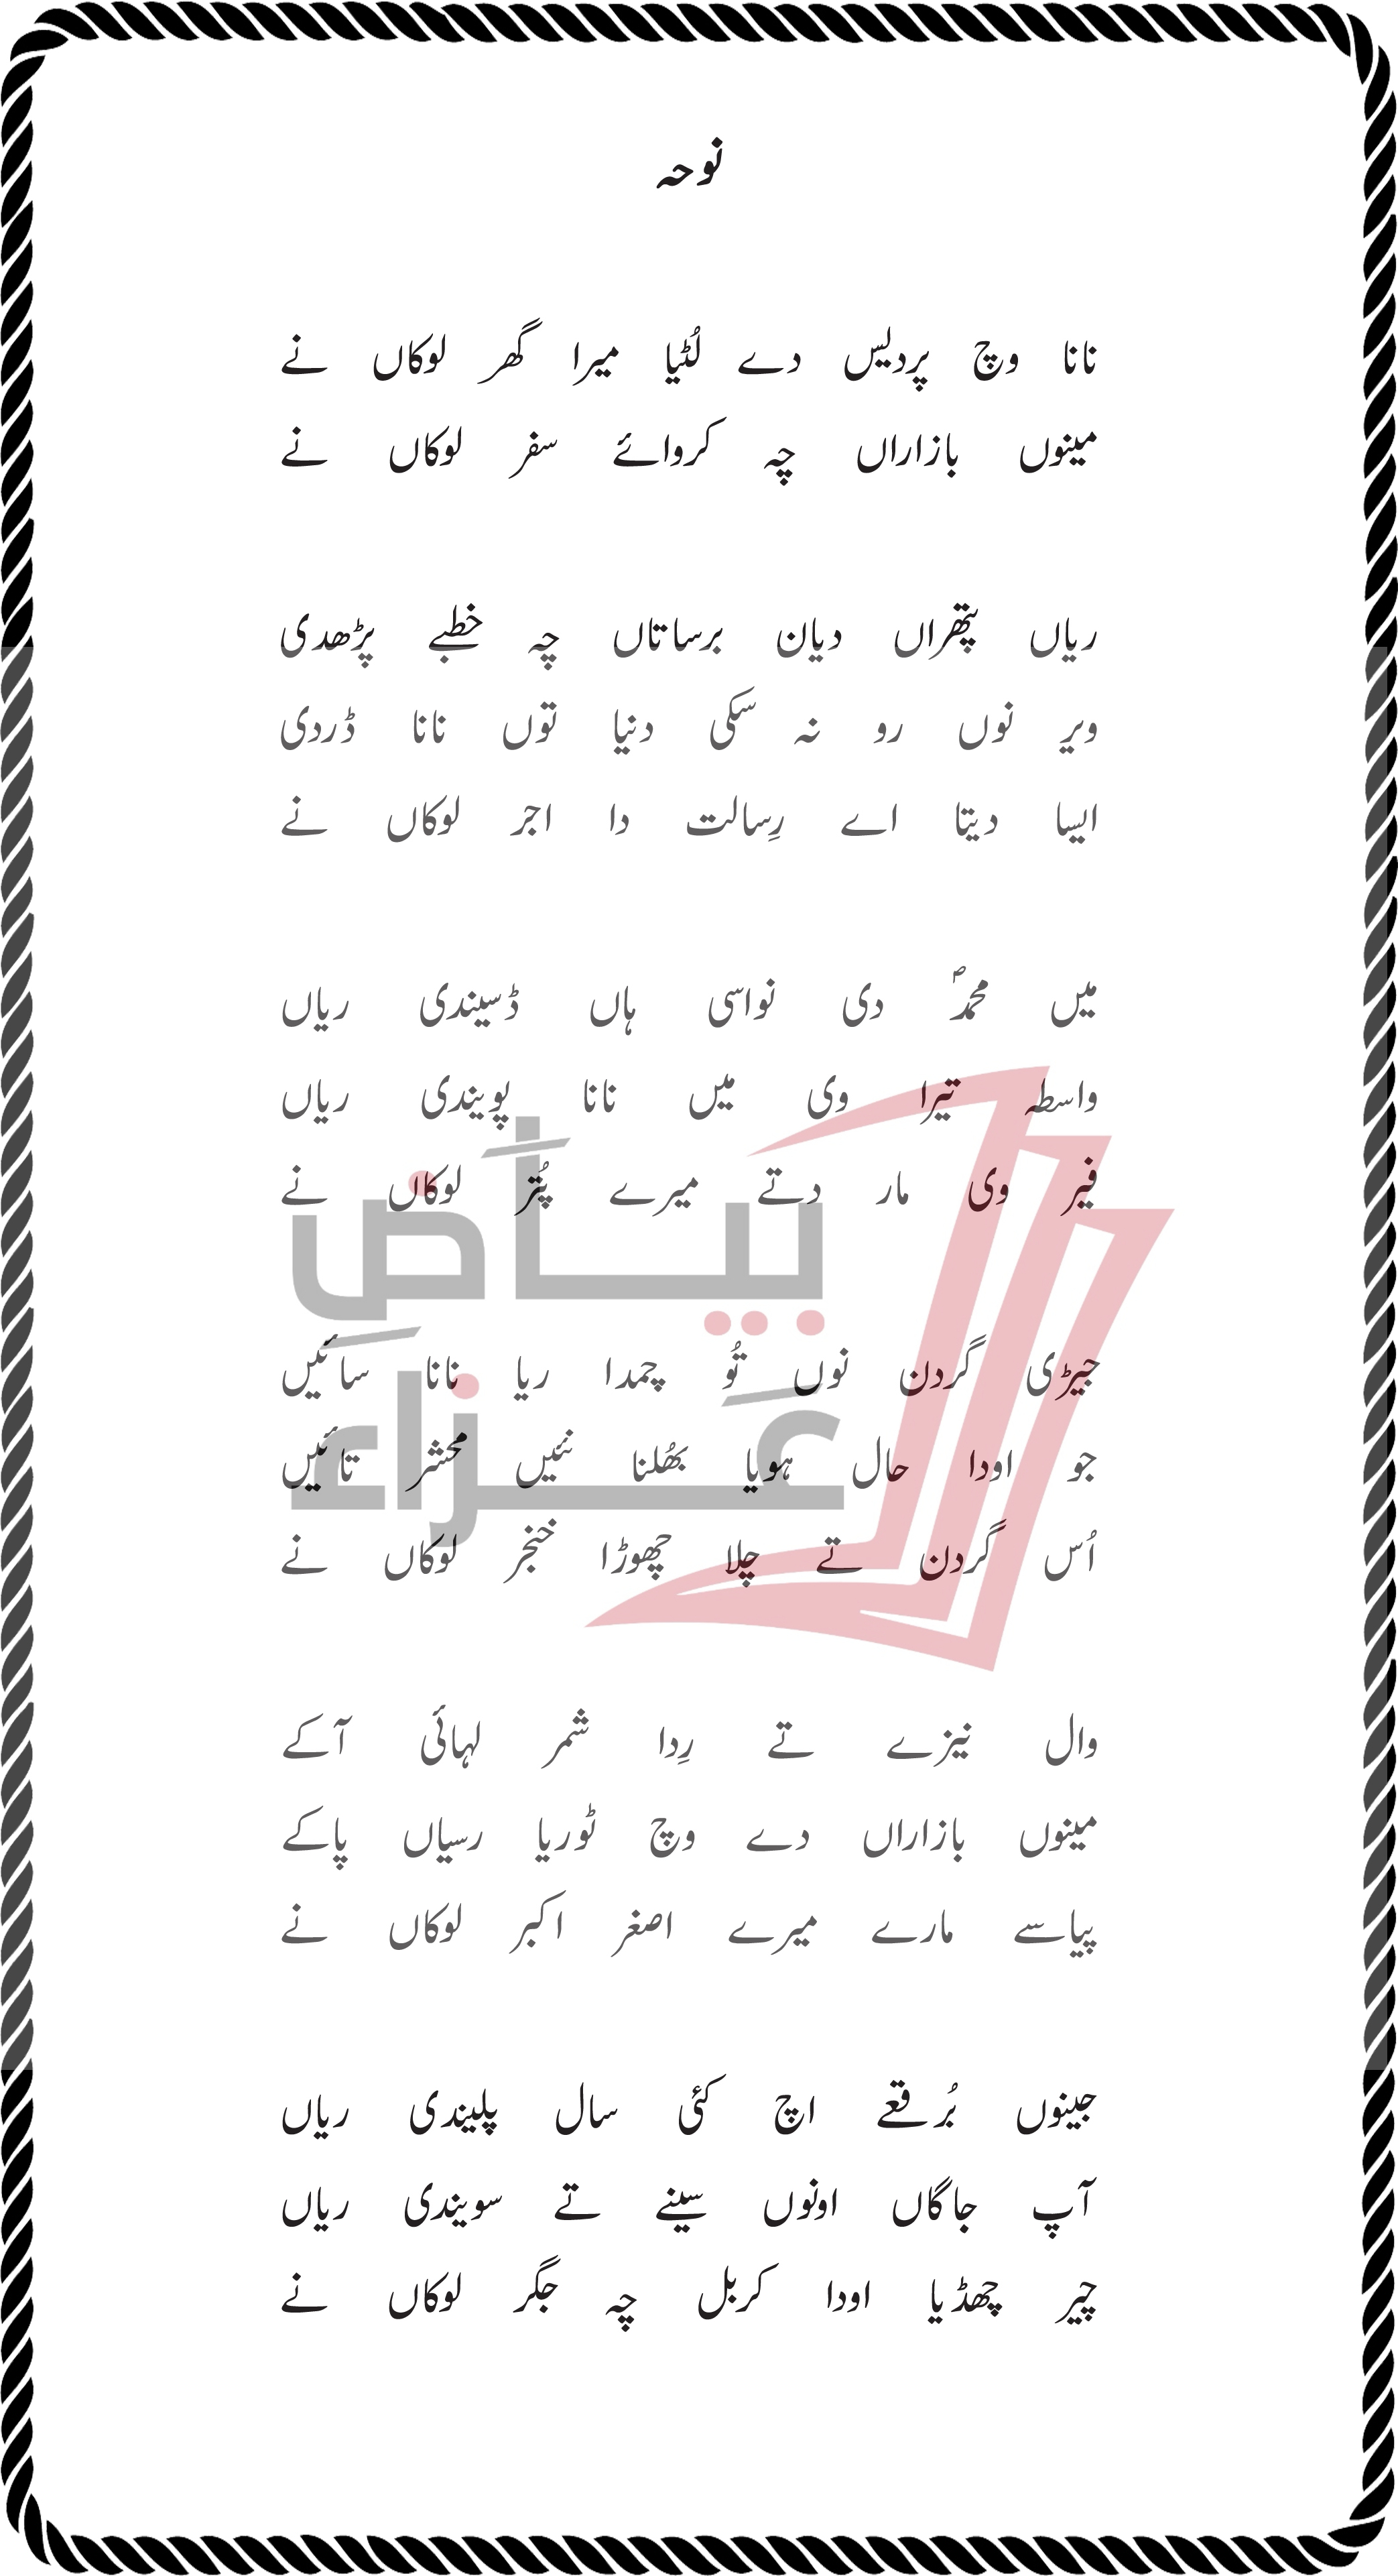 نوحہ
نانا وچ پردیس دے لُٹیا میرا گھر لوکاں نے
مینوں بازاراں چہ کروائے سفر لوکاں نے
ریاں پتھراں دیان برساتاں چہ خطبے پڑھدی
ویر نوں رو نہ سکی دنیا توں نانا ڈردی
ایسا دیتا اے رِسالت دا اجر لوکاں نے
میں محمدؐ دی نواسی ہاں ڈسیندی ریاں
واسطہ تیرا وی میں نانا پویندی ریاں
فیر وی مار دتے میرے پُتر لوکاں نے
جیڑی گردن نوں تُو چمدا ریا نانا سائیں
جو اودا حال ہویا بھُلنا نئیں محشر تائیں
اُس گردن تے چلا چھوڑا خنجر لوکاں نے
وال نیزے تے رِدا شمر لہائی آکے
مینوں بازاراں دے وچ ٹوریا رسیاں پاکے
پیاسے مارے میرے اصغر اکبر لوکاں نے
جینوں بُرقعے اچ کئی سال پلیندی ریاں
آپ جاگاں اونوں سینے تے سویندی ریاں
چیر چھڈیا اودا کربل چہ جگر لوکاں نے
بیاضِ
عزاء